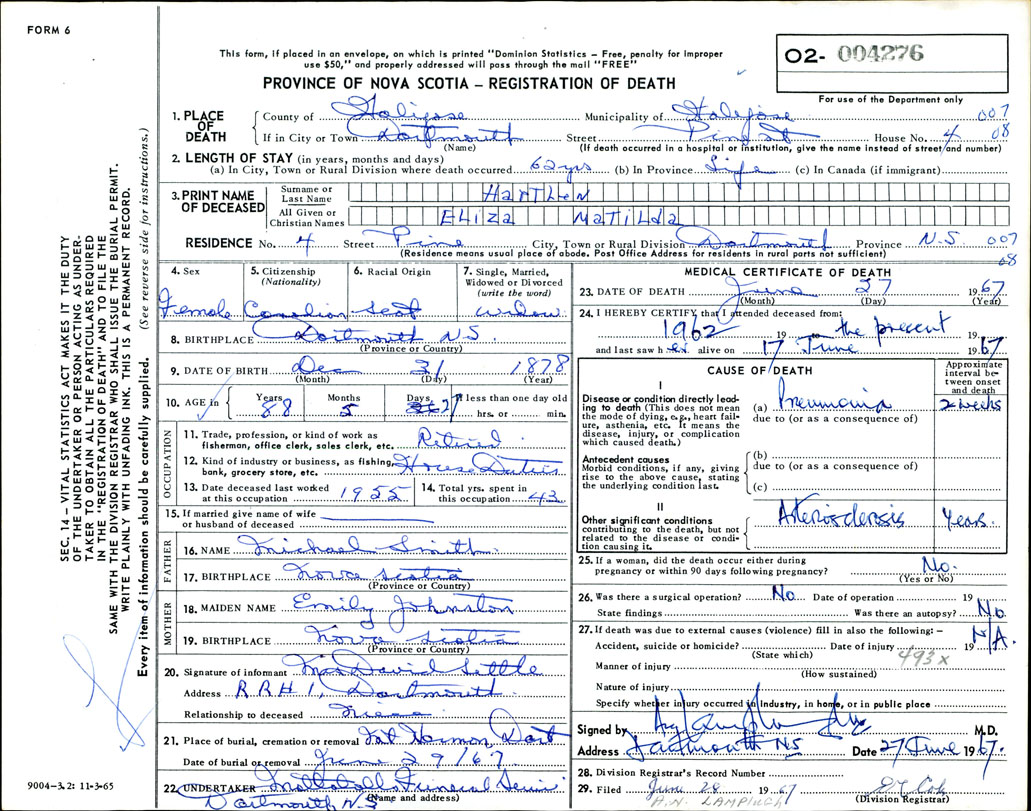 FORM 6
This form, if placed in an envelope, on which is printed "Dominion Statistics – Free, penalty for improper
use $50," and properly addressed will pass through the mail "FREE"
O2- 004276
For use of the Department only
PROVINCE OF NOVA SCOTIA – REGISTRATION OF DEATH
1. PLACE OF DEATH County of Halifax Municipality of Halifax 007
If in City or Town Dartmouth Street Pine St House No. 4 08
(Name) (If death occurred in a hospital or institution, give the name instead of street and number)
2. LENGTH OF STAY (in years, months and days)
(a) In City, Town or Rural Division where death occurred 62 yrs (b) In Province Life (c) In Canada (if immigrant)
3. PRINT NAME OF DECEASED Surname or Last Name HARTLEN
All Given or Christian Names ELIZA MATILDA
RESIDENCE No. 4 Street Pine City, Town or Rural Division Dartmouth Province N.S. 007
(Residence means usual place of abode. Post Office Address for residents in rural parts not sufficient) 08
4. Sex Female
5. Citizenship (Nationality) Canadian
6. Racial Origin Scot
7. Single, Married, Widowed or Divorced (write the word) Widow
8. BIRTHPLACE Dartmouth N.S.
(Province or Country)
9. DATE OF BIRTH Dec 31 1878
(Month) (Day) (Year)
10. AGE in Years 88 Months 5 Days 27 If less than one day old
hrs. or min.
OCCUPATION
11. Trade, profession, or kind of work as fisherman, office clerk, sales clerk, etc. Retired
12. Kind of industry or business, as fishing, bank, grocery store, etc. House Duties
13. Date deceased last worked at this occupation 1955
14. Total yrs. spent in this occupation 43
15. If married give name of wife or husband of deceased
FATHER
16. NAME Michael Smith
17. BIRTHPLACE Nova Scotia
(Province or Country)
MOTHER
18. MAIDEN NAME Emily Johnston
19. BIRTHPLACE Nova Scotia
(Province or Country)
20. Signature of informant Mrs David Settle
Address R.R # 1, Dartmouth
Relationship to deceased Niece
21. Place of burial, cremation or removal Mt Hermon Dart
Date of burial or removal June 29/67
22. UNDERTAKER Funeral
Dartmouth N.S.
(Name and address)
MEDICAL CERTIFICATE OF DEATH
23. DATE OF DEATH June 27 1967
(Month) (Day) (Year)
24. I HEREBY CERTIFY that I attended deceased from:
1962 19 to the present 19
and last saw h er alive on 17 June 1967
CAUSE OF DEATH
Approximate interval between onset and death
I
Disease or condition directly leading to death (This does not mean the mode of dying, e.g., heart failure, asthenia, etc. It means the disease, injury, or complication which caused death.)
(a) Pneumonia 2 weeks
due to (or as a consequence of)
Antecedent causes
Morbid conditions, if any, giving rise to the above cause, stating the underlying condition last.
(b)
due to (or as a consequence of)
(c)
II
Other significant conditions contributing to the death, but not related to the disease or condition causing it.
Arteriosclerosis Years.
25. If a woman, did the death occur either during pregnancy or within 90 days following pregnancy? No.
(Yes or No)
26. Was there a surgical operation? No Date of operation 19
State findings Was there an autopsy? No
27. If death was due to external causes (violence) fill in also the following: –
Accident, suicide or homicide? Date of injury 19 N/A.
(State which) 493x
Manner of injury
(How sustained)
Nature of injury
Specify whether injury occurred in Industry, in home, or in public place
Signed by M.D.
Address Dartmouth NS Date 27 June 1967.
28. Division Registrar's Record Number
29. Filed June 28 1967
(Division Registrar)
SEC. 14 – VITAL STATISTICS ACT MAKES IT THE DUTY
OF THE UNDERTAKER OR PERSON ACTING AS UNDER-
TAKER TO OBTAIN ALL THE PARTICULARS REQUIRED
IN THE "REGISTRATION OF DEATH" AND TO FILE THE
SAME WITH THE DIVISION REGISTRAR WHO SHALL ISSUE THE BURIAL PERMIT.
WRITE PLAINLY WITH UNFADING INK. THIS IS A PERMANENT RECORD.
Every item of information should be carefully supplied. (See reverse side for instructions.)
9004-3.2: 11-3-65